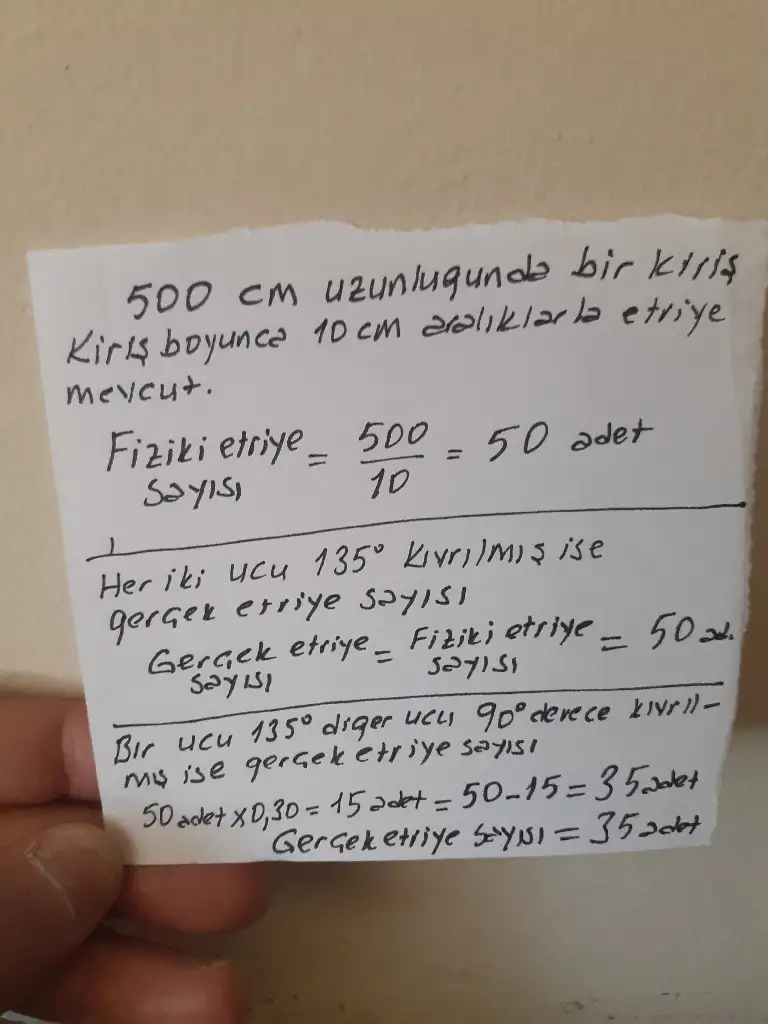 500 cm uzunluğunda bir kiriş
Kiriş boyunca 10 cm aralıklarla etriye
mevcut.
Fiziki etriye = 500/10 = 50 adet
sayısı
Her iki ucu 135° kıvrılmış ise
gerçek etriye sayısı
Gerçek etriye = Fiziki etriye = 50 ad.
sayısı sayısı
Bir ucu 135° diğer ucu 90° derece kıvrıl-
mış ise gerçek etriye sayısı
50 adet x 0,30 = 15 adet = 50-15 = 35 adet
Gerçek etriye sayısı = 35 adet